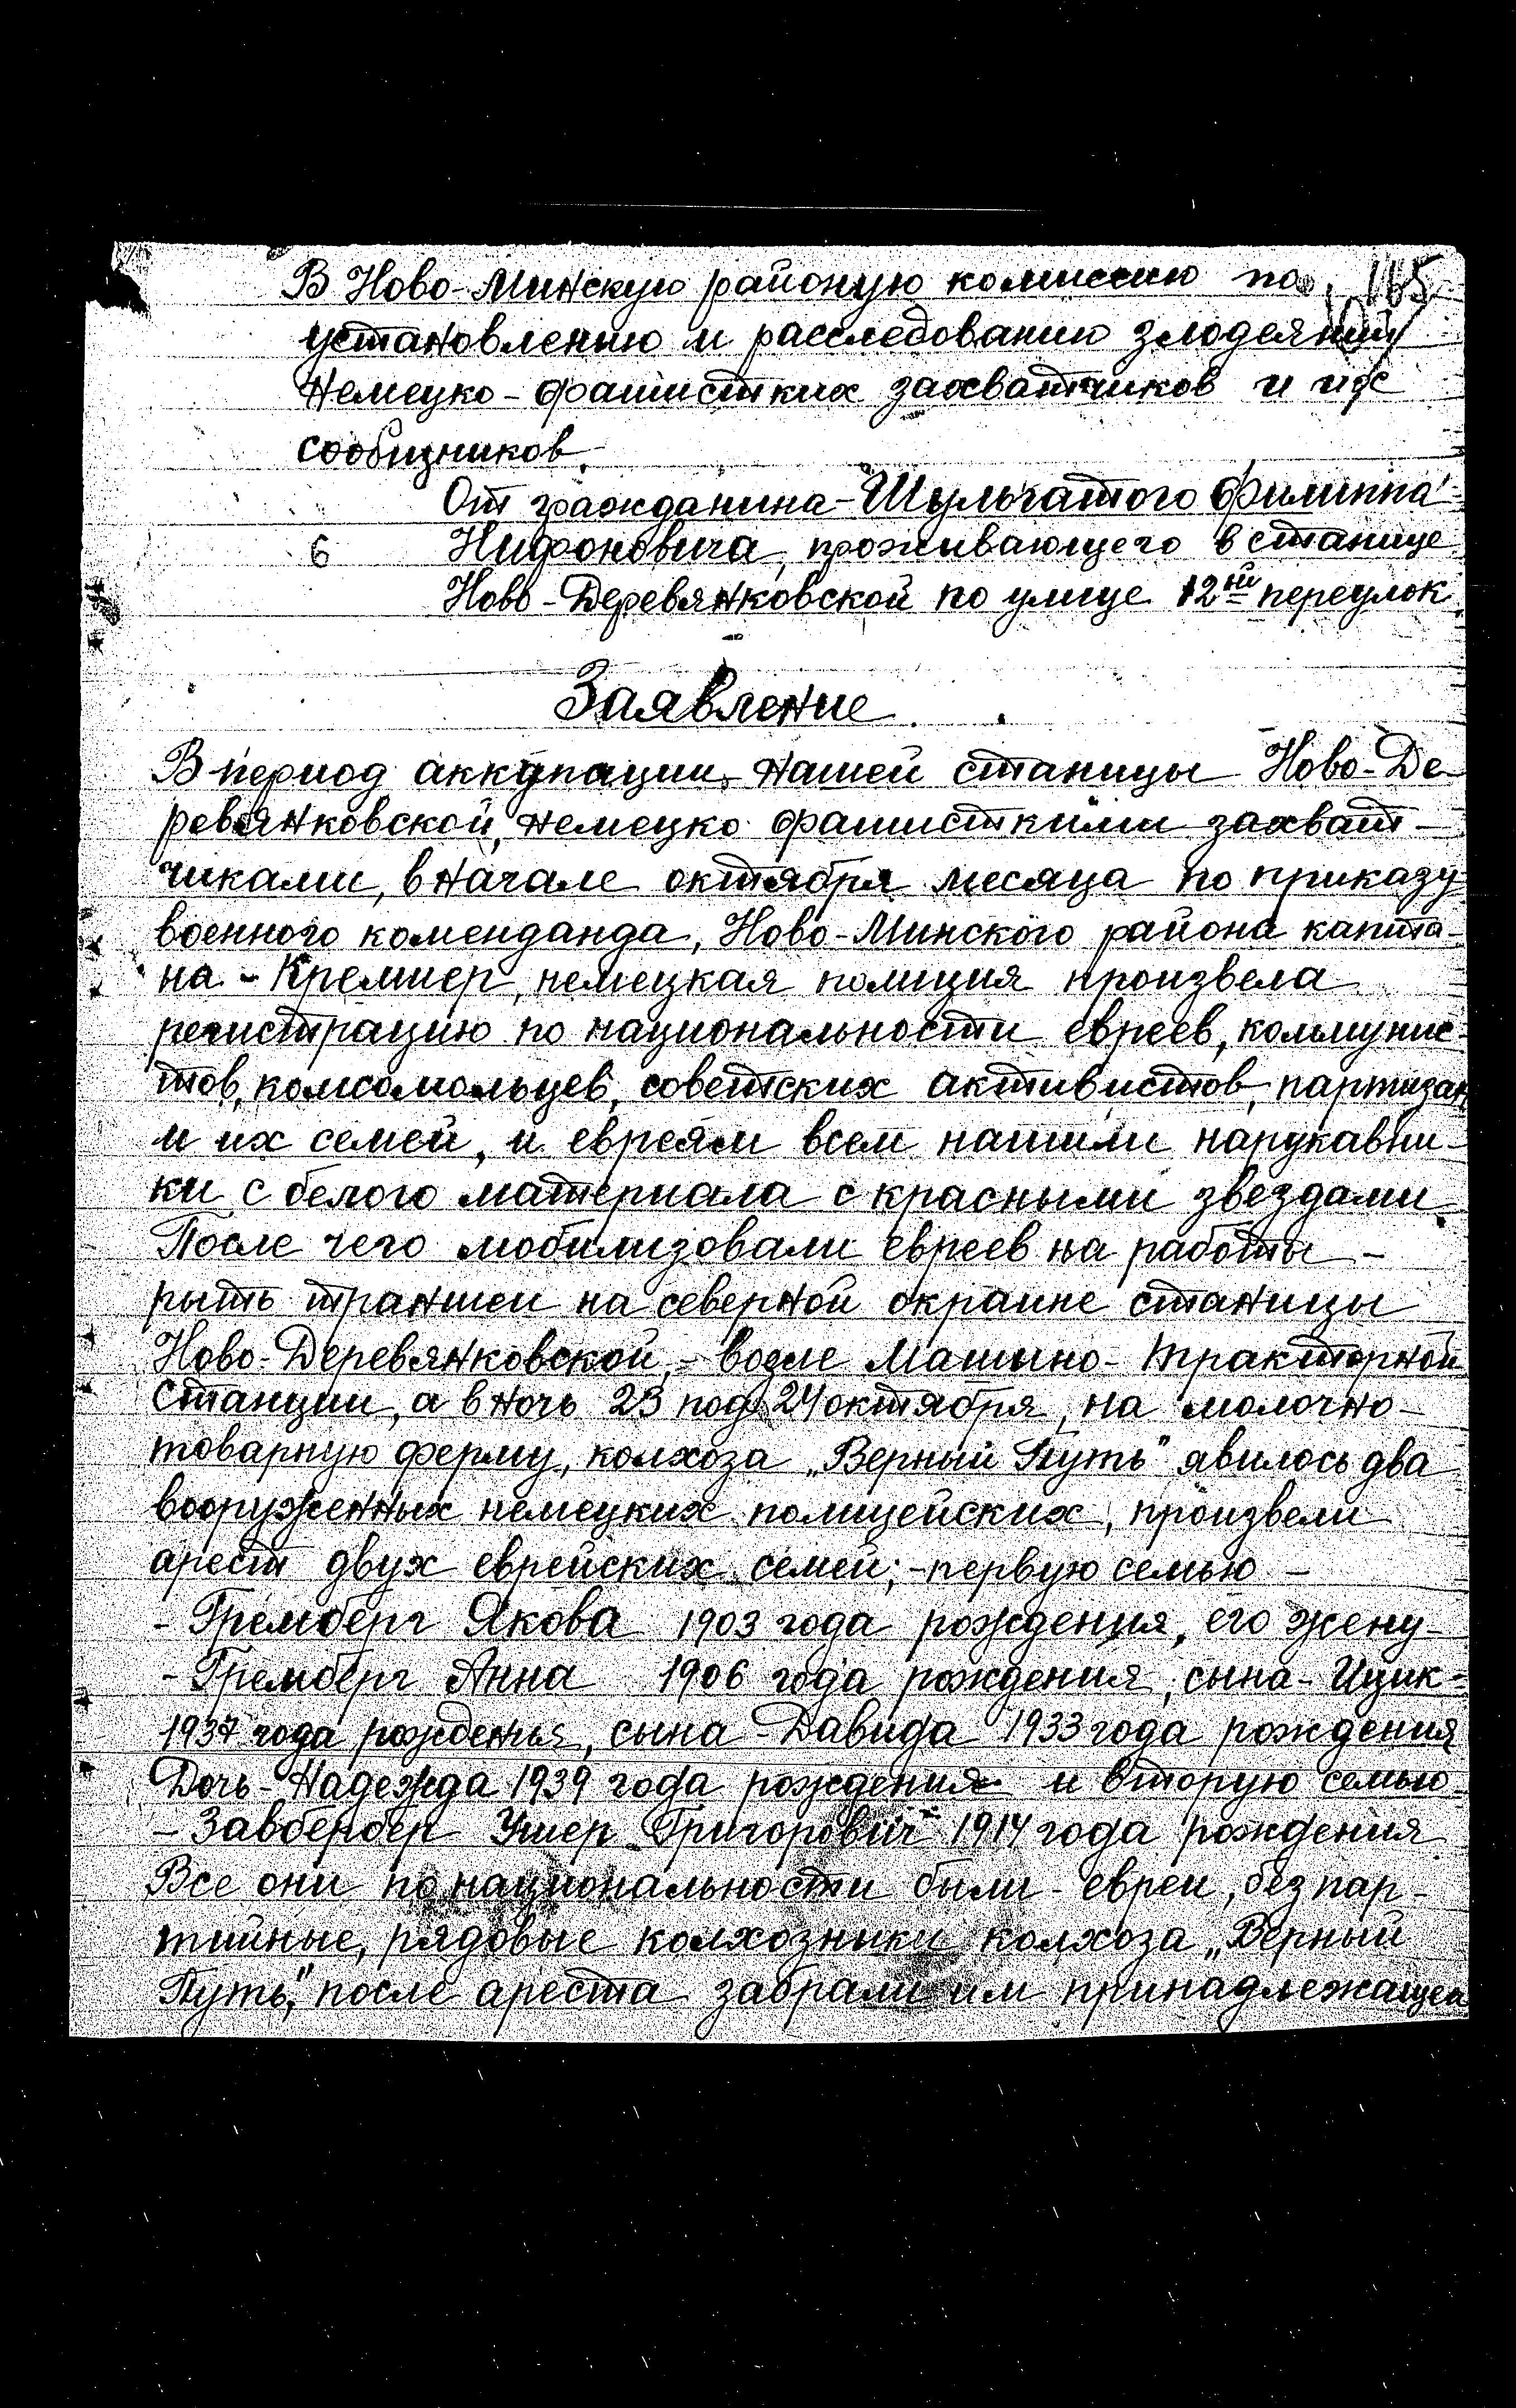 В Ново-Минскую районую комиссию по 165
установлению и расследованию злодеяний
немецко-фашистких захватчиков и их
сообщников.
От гражданина-Шульгатого Филиппа
6 Нифоновича, проживающего в станице
Ново-Деревянковской по улице 12ый переулок
Заявление
В период аккупации нашей станицы Ново-Де-
ревянковской, немецко фашисткими захват-
чиками, в начале октября месяца по приказу
военного коменданда, Ново-Минского района капита-
на - Кремиер, немецкая полиция произвела
регистрацию по национальности евреев, коммунис-
тов, комсомольцев, советских активистов, партизан
и их семей, и евреям всем нашили нарукавни-
ки с белого материала с красными звездами.
После чего мобилизовали евреев на работы -
рыть траншеи на северной окраине станицы
Ново-Деревянковской, - возле Машино-тракторной
станции, а в ночь 23 под 24 октября, на молочно-
товарную ферму, колхоза „Верный Путь" явилось два
вооруженных немецких полицейских, произвели
арест двух еврейских семей; - первую семью -
- Гремберг Якова 1903 года рождения, его жену -
- Гремберг Анна 1906 года рождения, сына - Ицик -
1937 года рожденья, сына - Давида 1933 года рождения
Дочь - Надежда 1939 года рождения и вторую семью
- Завбербер Ушер Григорович 1914 года рождения
Все они по национальности были - евреи, без пар-
тийные, рядовые колхозники колхоза „Верный
Путь," после ареста забрали им принадлежащей